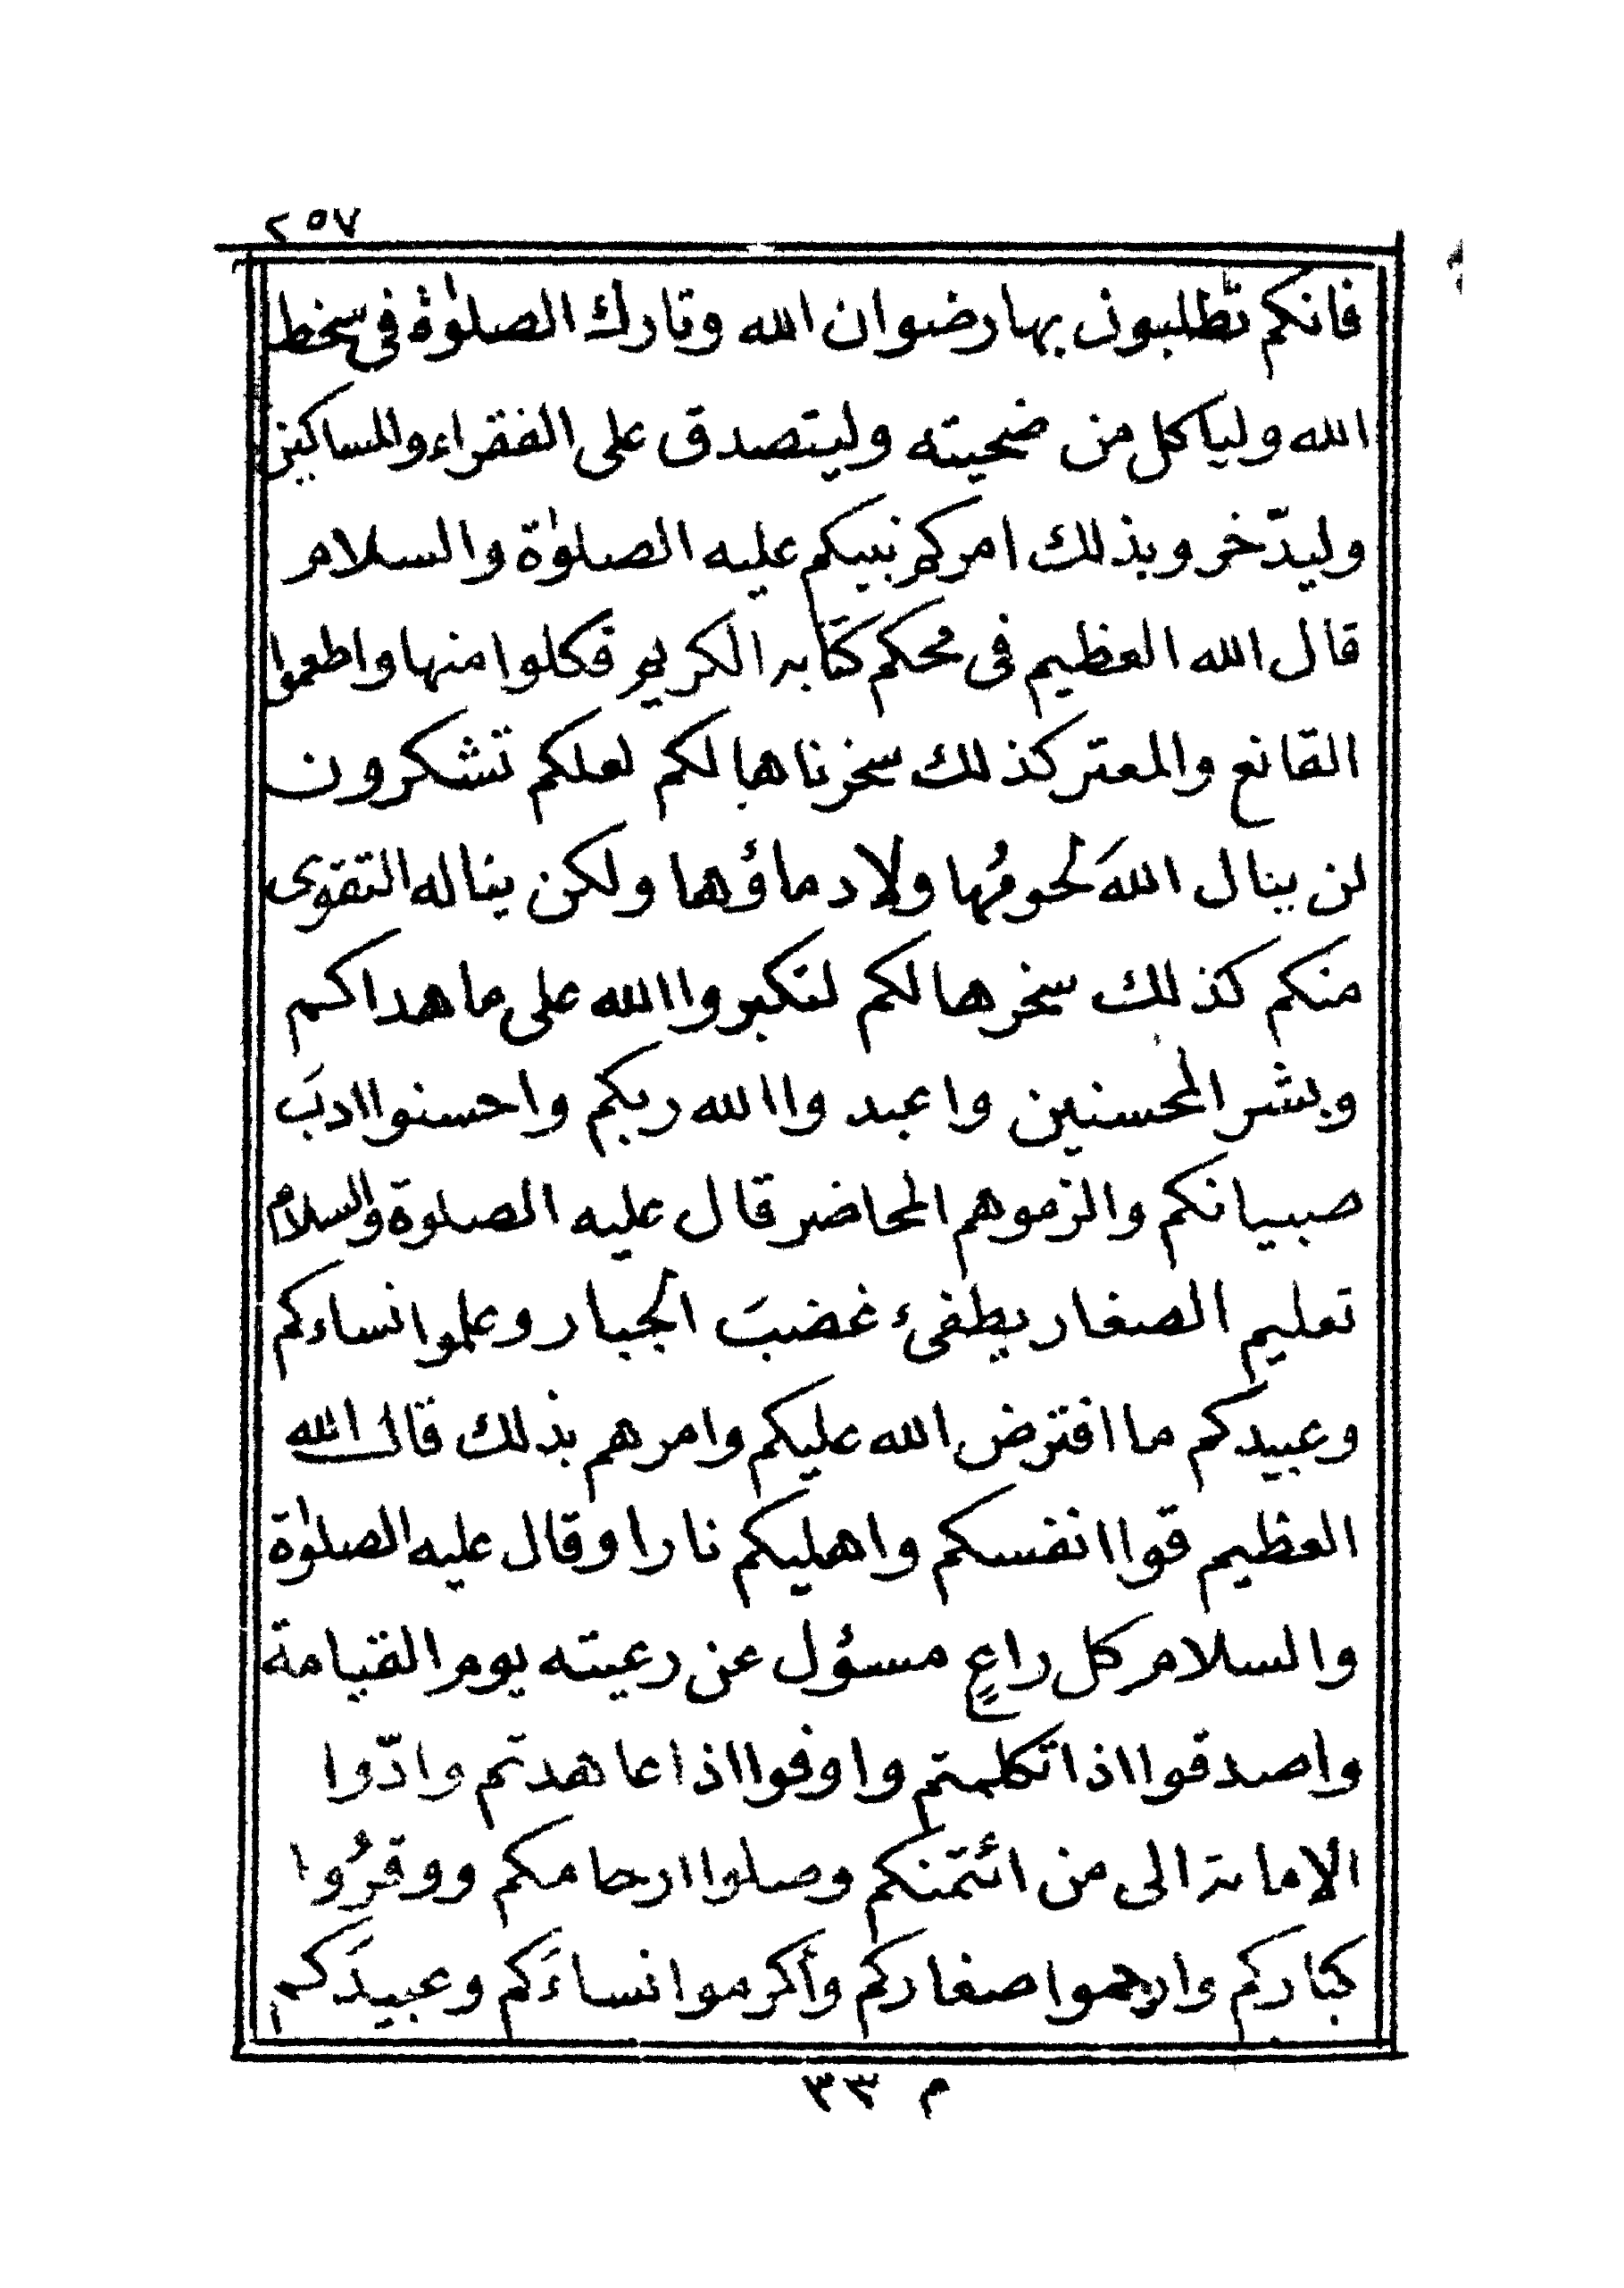 ٢٥٧
فانكم تطلبون بها رضوان الله وتارك الصلوٰة فى سخط
الله وليأكل من ضحيته وليتصدق على الفقراء والمساكين
وليدّخر وبذلك امركم نبيكم عليه الصلوٰة والسلام
قال الله العظيم فى محكم كتابه الكريم فكلوا منها واطعموا
القانع والمعتر كذلك سخرناها لكم لعلكم تشكرون
لن ينال اللهَ لحومُها ولا دماؤها ولكن يناله التقوى
منكم كذلك سخرها لكم لتكبروا الله على ما هداكم
وبشر المحسنين واعبدوا الله ربكم واحسنوا ادبَ
صبيانكم والزموهم المحاضر قال عليه الصلوة والسلام
تعليم الصغار يطفىء غضبَ الجبار وعلموا نساءكم
وعبيدكم ما افترض الله عليكم وامرهم بذلك قال الله
العظيم قوا انفسكم واهليكم نارا وقال عليه الصلوٰة
والسلام كل راعٍ مسؤل عن رعيته يوم القيامة
واصدقوا اذا تكلمتم واوفوا اذا عاهدتم وادّوا
الامانة الى من ائتمنكم وصلوا ارحامكم ووقرُوا
كباركم وارحموا صغاركم وأكرموا نساءَكم وعبيدَكم
م ٣٣